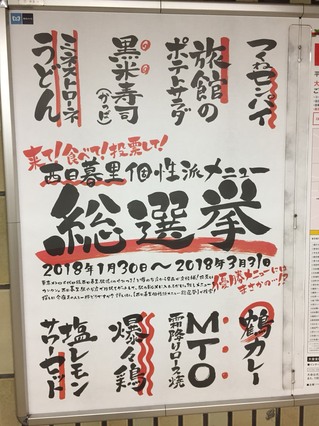 マネセンパイ
旅館の
ポテトサラダ
黒米寿司
(かっぱ)
ミネストローネ
うどん
来て!食べて!投票して!
西日暮里個性派メニュー
総選挙
2018年1月30日〜2018年3月31日
優勝メニューには
まさかの…!?
鶴カレー
MTO
霜降りロース焼
爆々鶏
塩レモン
サワーセット